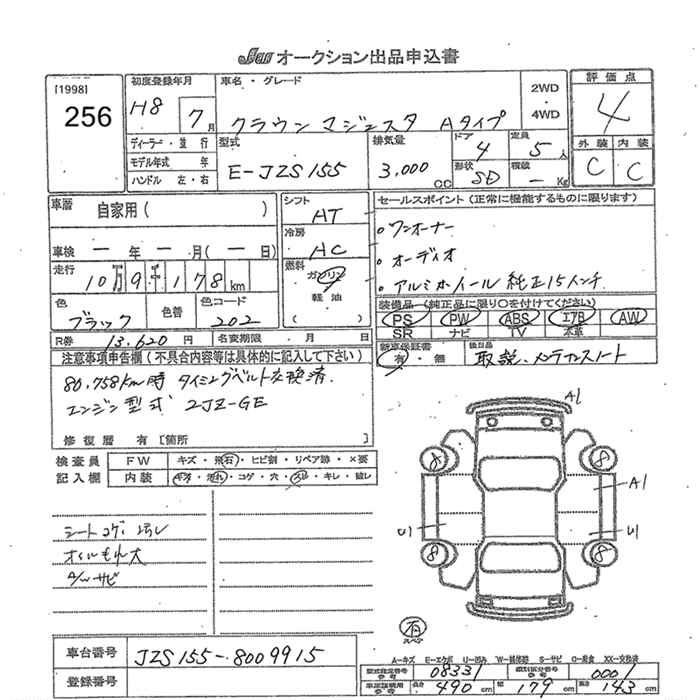 JAA オークション出品申込書
[1998]
256
初度登録年月
H8 7月
ディーラー・並行
モデル年式 年
ハンドル 左・右
車名・グレード
クラウン マジェスタ Aタイプ
2WD
4WD
型式
E-JZS155
排気量
3,000 CC
ドア
4
定員
5人
形状
SD
積載
- Kg
評価点
4
外装 内装
C C
車歴
自家用( )
車検 - 年 - 月(- 日)
走行
10万9千178km
色
ブラック
色替
色コード
202
R券 13,620円
名変期限 月 日
シフト
AT
冷房
AC
燃料
ガソリン
軽油
( )
セールスポイント(正常に機能するものに限ります)
・ワンオーナー
・オーディオ
・アルミホイール 純正15インチ
装備品(純正品に限り○を付けてください)
PS PW ABS エアB AW
SR ナビ TV 本革
新車保証書
有・無
後日品
取説、メンテナンスノート
注意事項申告欄(不具合内容等は具体的に記入して下さい)
80,758km時 タイミングベルト交換済.
エンジン型式 2JZ-GE
修復歴 有[箇所 ]
検査員
記入欄
FW キズ・飛石・ヒビ割・リペア跡・×要
内装 キズ・汚れ・コゲ・穴・スレ・キレ・破レ
シートコゲ・スレ
オイルもれ大
A/Wサビ
A1
8 8
A1
U1 U1
8 8
有
スペア
車台番号 JZS155-8009915
登録番号
A-キズ E-エクボ U-凹み W-補修跡 S-サビ C-腐食 XX-交換済
型式指定番号 参考 08331
類別区分番号 参考 0001
車両証明用 参考 長さ 490cm 幅 179cm 高さ 143cm